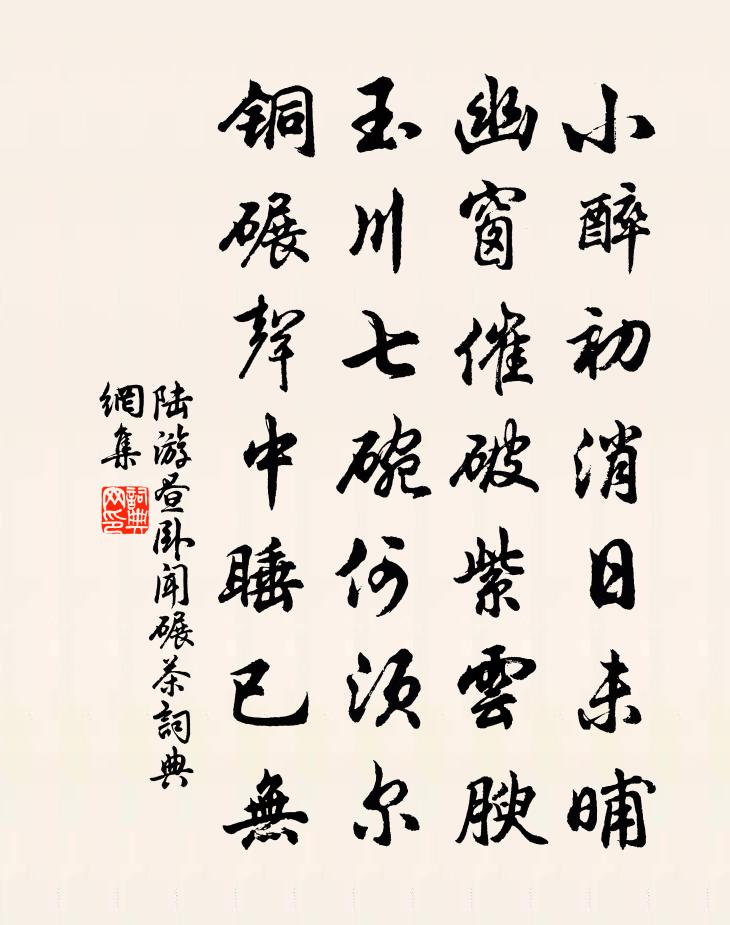 小醉初消日未晡
幽窗催破紫雲腴
玉川七碗何須尔
銅碾聲中睡已無
陆游昼卧聞碾茶詞典
網集
詞典
网印